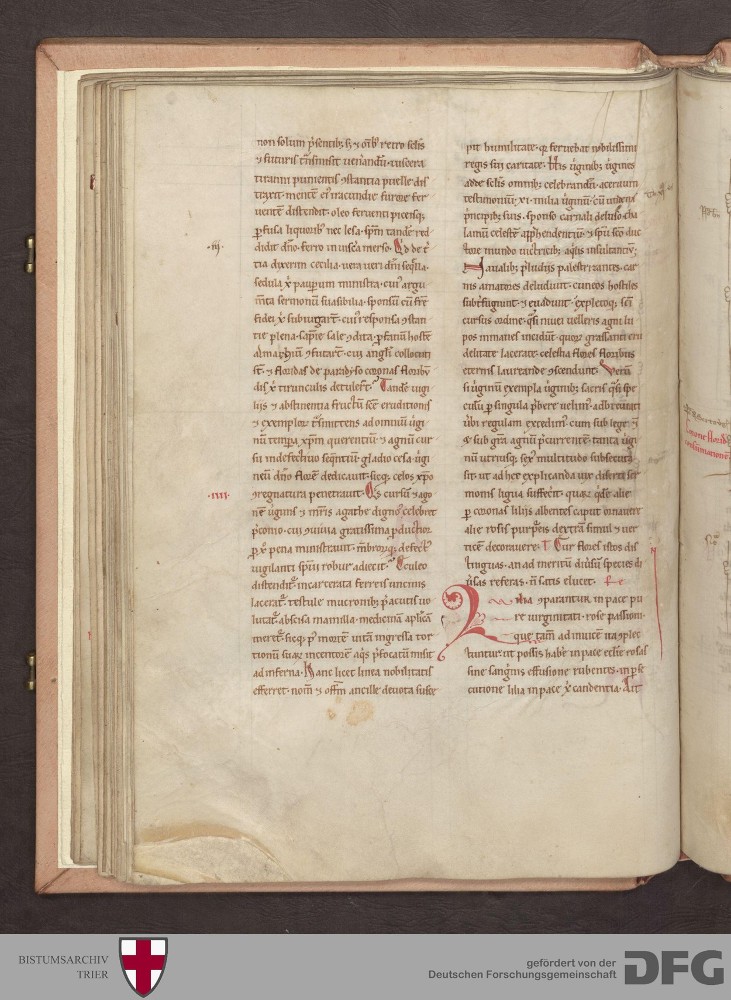 non solum p̄sentib; sꝫ ⁊ om̄ib; retro sc̄lis
⁊ futuris t̄nsmisit uen̄andū
tiranni punientis ꝯstantia puelle dis
mente eī iracundie furore fer
uente distendit. oleo feruenti piceisq;
ꝑfusa liquorib; nec lesa. sp̄m tandē red
.iij.
didit dn̄o. ferro in uisc̄a merso. Qd de t̄
tia dixerim cecilia. uera ueri dn̄i
sedula xp̄i pauꝑum ministra. cuī argu
m̄ta sermonū suasibilia. sponsū
fidei xp̄i subiugar̄t. cuī responsa ꝯstan
tie plena. sapīe sale ꝯdita. ꝓfanū hostē
almachiū ꝯfutar̄t. cui angl̄i collocuti
st̄. ⁊ floridas de paradyso coronas floribꝫ
dis xp̄i tirunculis detulert̄. Tande uigi
liis ⁊ abstinentia fructū sc̄e eruditionis
⁊ exemploꝝ t̄smittens ad ominū ūgi
nū tempꝉa. xp̄m querentiū. ⁊ agnū cur
su indefectiuo seqn̄tiū. gladio cesa. ūgi
neū dn̄o florē dedicauit. sicq; celos xp̄o
.IIII.
ꝯregnatura penetrauit. Qs cursū ⁊ ago
nē ūginis ⁊ mr̄is agathe dignꝰ celebret
p̄conio. cui ꝯuiuia gratissima
ꝑ xp̄o pena ministrauit. mēbroꝝq; defectꝰ
uigilanti sp̄ui robur adiecit. Eculeo
distenditꝰ. incarcerata ferreis uncinis
laceratꝰ. testule mucronibꝫ p̄acutis uo
lutatꝰ. abscisa mamilla. medicinā
meret̄. sicq; ꝑ mortē uitā ingressa. tor
tionū suaꝝ incentorē aq̄s p̄focatū misit
ad inferna. Hanc licet linea nobilitatis
efferret. nom̄ ⁊ offm̄ ancille deuota susce
pit humilitate. q̄ feruebat nobilissimi
regis sui caritate. His ūginibꝫ ūgines
adde sc̄lis omnibꝫ celebrandū. aceruum
testimoniū. xi. milia ūginū. cū
p̄incipibꝫ suis. sponso carnali deluso. tha
lamū celestē app̄hendentiū. ⁊ sp̄u sc̄o duc
tore mundo uictricibꝫ aq̄is insultantiū.
Naualibꝫ p̄ludiis palestrizantes. car
nis amatores deludunt. cuneos hostiles
subt̄fugiunt. ⁊ euadunt. expletoq; sc̄i
cursus ordine. q̄si niuei uelleris agni lu
pos inmanes incidūt. quoꝝ grassanti cru
delitate lacerate. celestia flores floribus
eternis laureande ꝯscendunt. Verū
si ūginū exempla ūginibꝫ sacris q̄si spe
culū ꝑ singula p̄bere uelim̄. adbreuiati
ūbi regulam excedim̄. cum sub lege ⁊
⁊ sub gr̄a. agnū p̄currentē. tanta ūgi
nū utriusq; sex̄ multitudo subsecuta
sit. ut ad hec explicanda uix diserti ser
monis ligua sufficit. quaꝝ q̄dē alie
ꝑ coronas liliis albentes caput ornauert̄
alie rosis purpūeis dextrā simul ⁊ uer
ticē decorauere. T. Cur flores istos dis
tinguas. an ad meritū diūsū species di
ūsas referas. n̄ satis elucet. Re
Lilia ꝯparantur in pace pu
re uirginitati. rose passioni.
que tam̄ ad inuicē ita ꝯplec
tuntur. ut possis habe in pace eccl̄ie rosas
sine sanguīs effusione rubentes. in ꝑse
cutione lilia in pace xp̄i candentia. Ait
BISTUMSARCHIV
TRIER
gefördert von der
Deutschen Forschungsgemeinschaft
DFG